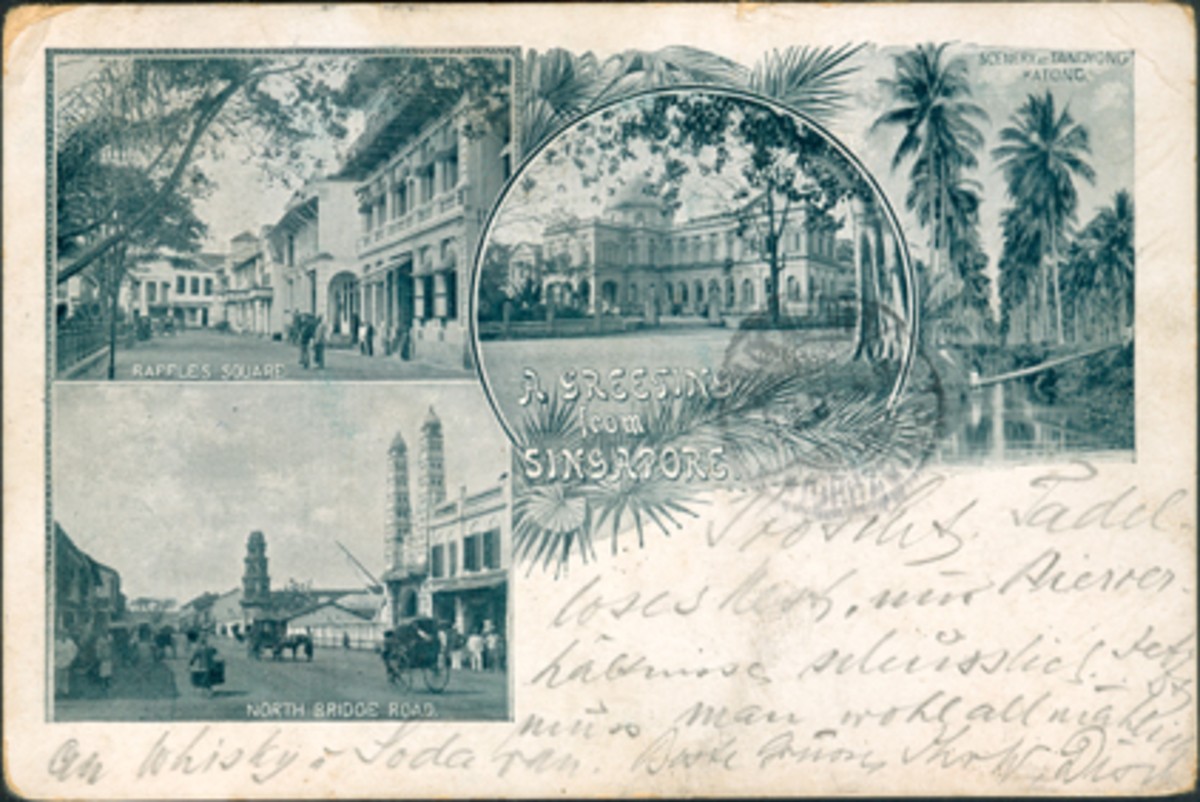 SCENERY AT TANGYONG
KATONG.
RAFFLES SQUARE
A GREETING
from
SINGAPORE.
NORTH BRIDGE ROAD.
Prosit. Tadel-
loses Nest, nur Bierver-
hältnisse scheusslich! Jetzt
muss man wohl allmählich
an Whisky & Soda ran. Beste Grüsse, Ihr